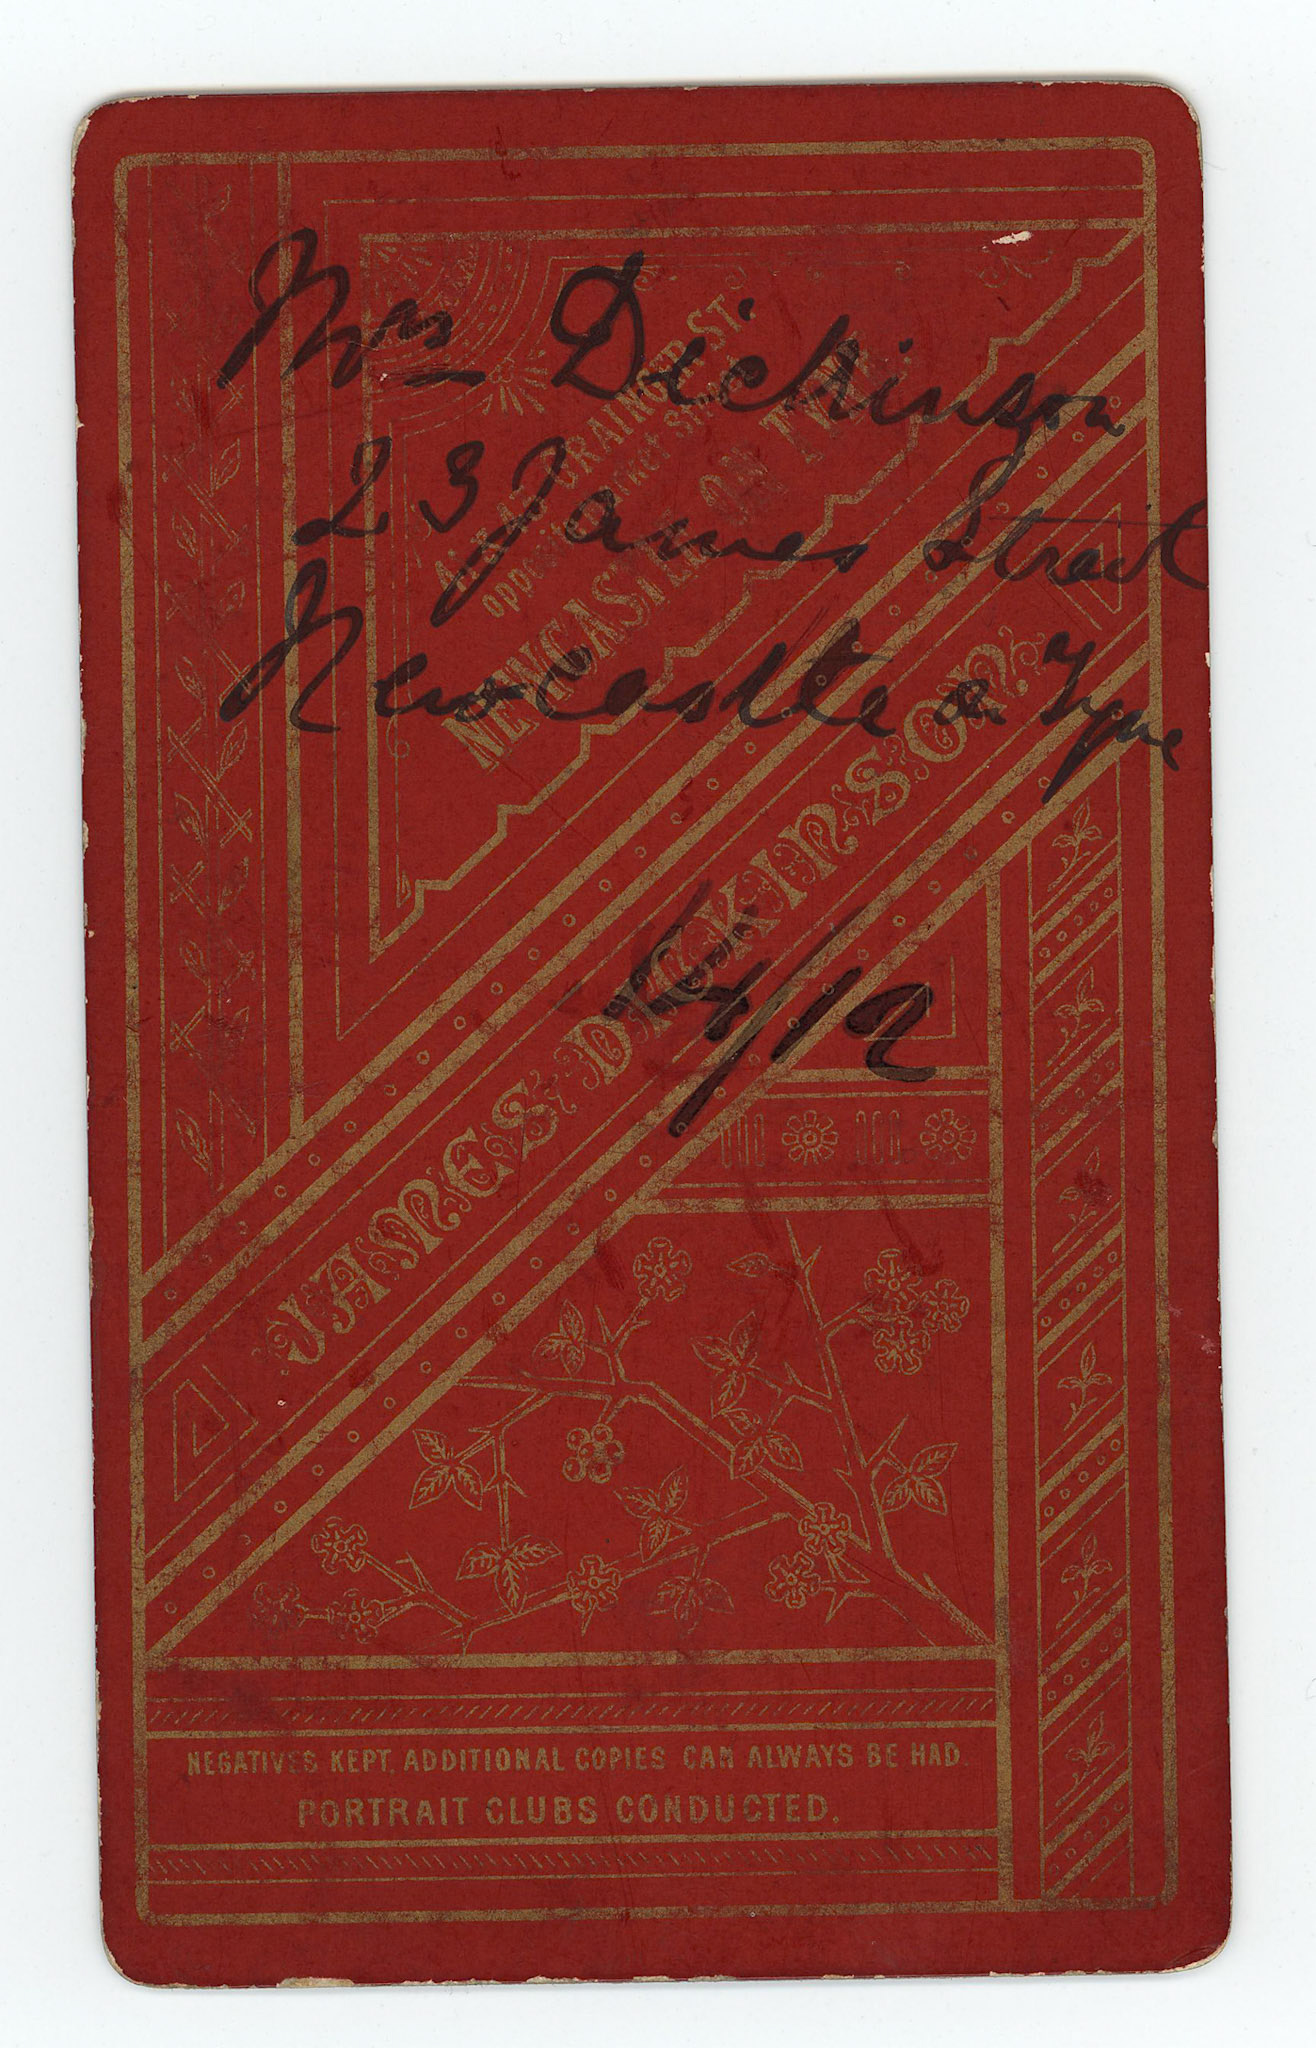 Mrs Dickinson
23 James Street
Newcastle on Tyne
4/12
GRAINGER ST.
opposite Market Street
NEWCASTLE ON TYNE
JAMES DICKINSON.
NEGATIVES KEPT, ADDITIONAL COPIES CAN ALWAYS BE HAD.
PORTRAIT CLUBS CONDUCTED.